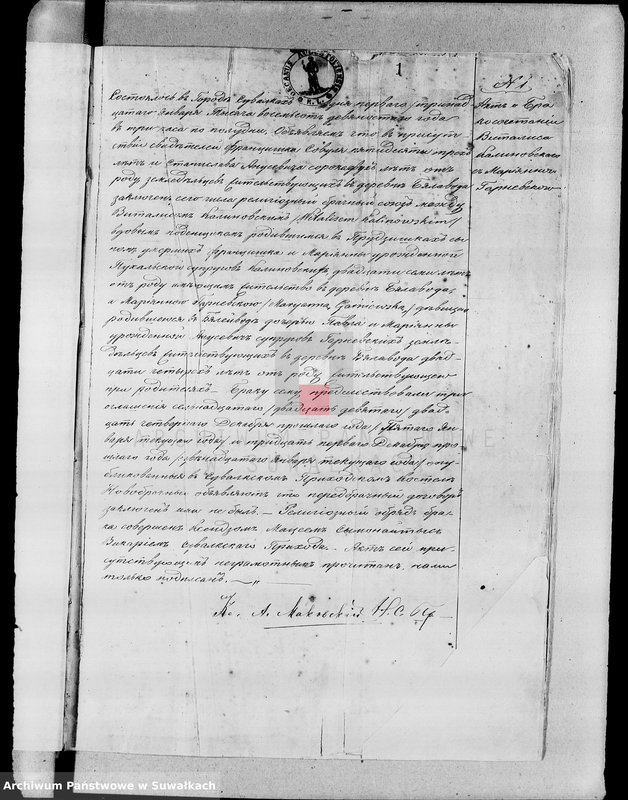 DECANUS AUGUSTOVIENSIS
R. L.
1
№ 1
Состоялось въ Городѣ Сувалкахъ дня перваго / тринад
цатаго Января тысяча восемьсотъ девяностаго года
въ три часа по полудни. Объявляемъ что въ присут-
ствіи свидѣтелей Францишка Собуля пятидесяти трехъ
лѣтъ и Станислава Анусевича сорока лѣтъ отъ
роду земледѣльцевъ жительствующихъ въ деревнѣ Бялавода
заключенъ сего числа религіозный брачный союзъ между
Виталисомъ Калиновскимъ / Witalisem Kalinowskim /
вдовымъ поденщикомъ родившимся въ Прудзишкахъ сы-
номъ умершихъ Францишка и Маріанны урожденной
супруговъ Калиновскихъ двадцати семи лѣтъ
отъ роду имѣющимъ жительство въ деревнѣ Бялавода
и Маріанною Гарневскою / Maryanną Garniewską / дѣвицею
родившеюся въ Бялейводѣ дочерью Павла и Маріанны
урожденной Анусевичъ супруговъ Гарневскихъ земле-
дѣльцевъ жительствующихъ въ деревнѣ Бялавода двад-
цати четырехъ лѣтъ отъ роду жительствующею
при родителяхъ. Браку сему предшествовали три
оглашенія семнадцатаго / двадцать девятаго / двад-
цать четвертаго Декабря прошлаго года / пятаго Ян-
варя текущаго года / и тридцать перваго Декабря про-
шлаго года / двѣнадцатаго Января текущаго года / опу-
бликованныя въ Сувалкскомъ Приходскомъ Костелѣ
Новобрачные объявляютъ что предбрачный договоръ
заключенъ ими не былъ. Религіозный обрядъ бра-
ка совершенъ Ксендзомъ Мацеемъ
Викаріемъ Сувалкскаго Прихода. Актъ сей при-
сутствующимъ неграмотнымъ прочитанъ, нами
только подписанъ.
Кс. А.
Актъ о Бра
косочетаніи
Виталиса
Калиновскаго
съ Маріанною
Гарневскою
Archiwum Państwowe w Suwałkach